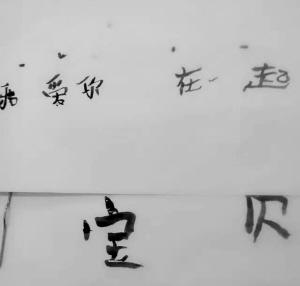 爱你 在一起
宝 贝